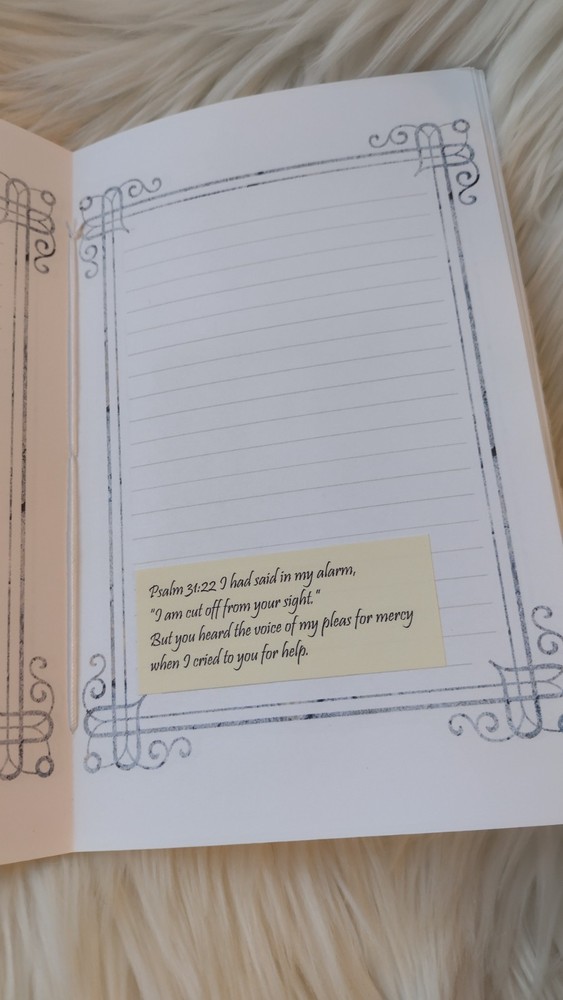 Psalm 31:22 I had said in my alarm,
"I am cut off from your sight."
But you heard the voice of my pleas for mercy
when I cried to you for help.